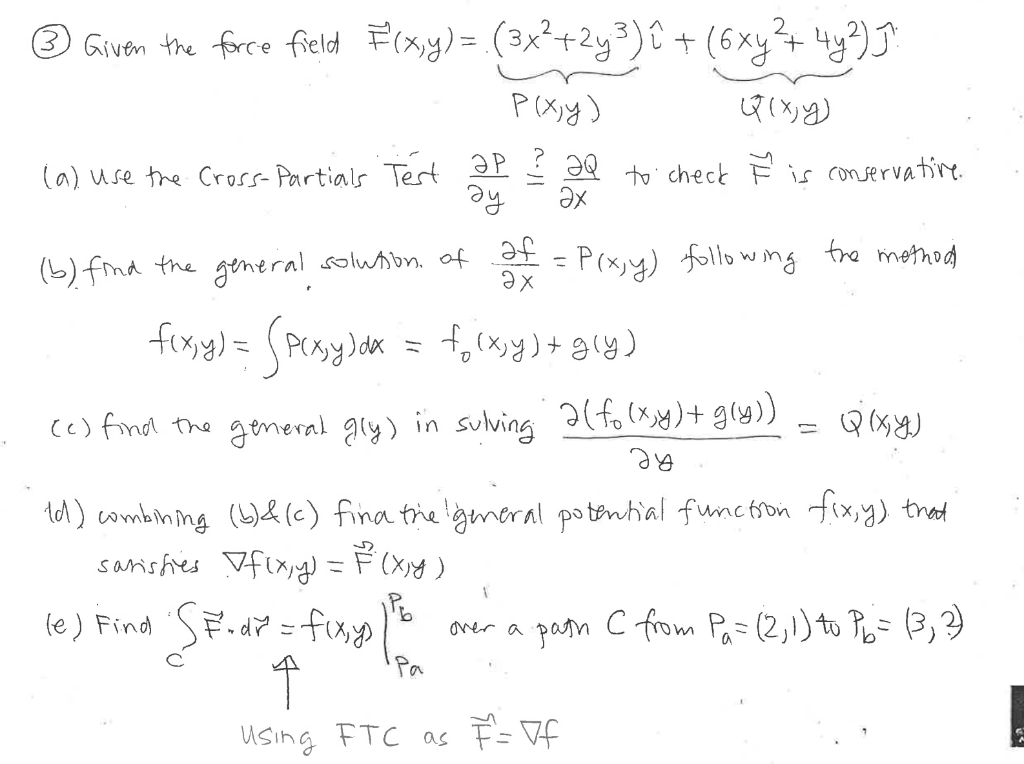 ③ Given the force field F⃗(x,y) = (3x²+2y³) î + (6xy²+ 4y²) ĵ
P(x,y) Q(x,y)
(a) Use the Cross-Partials Test ∂P/∂y ?= ∂Q/∂x to check F⃗ is conservative.
(b) find the general solution of ∂f/∂x = P(x,y) following the method
f(x,y) = ∫P(x,y)dx = f₀(x,y) + g(y)
(c) find the general g(y) in solving ∂(f₀(x,y)+ g(y))/∂y = Q(x,y)
(d) combining (b)&(c) find the general potential function f(x,y) that
satisfies ∇f(x,y) = F⃗(x,y)
(e) Find ∫_C F⃗·dr⃗ = f(x,y)|_Pa^Pb over a path C from Pa = (2,1) to Pb = (3,2)
↑
Using FTC as F⃗ = ∇f